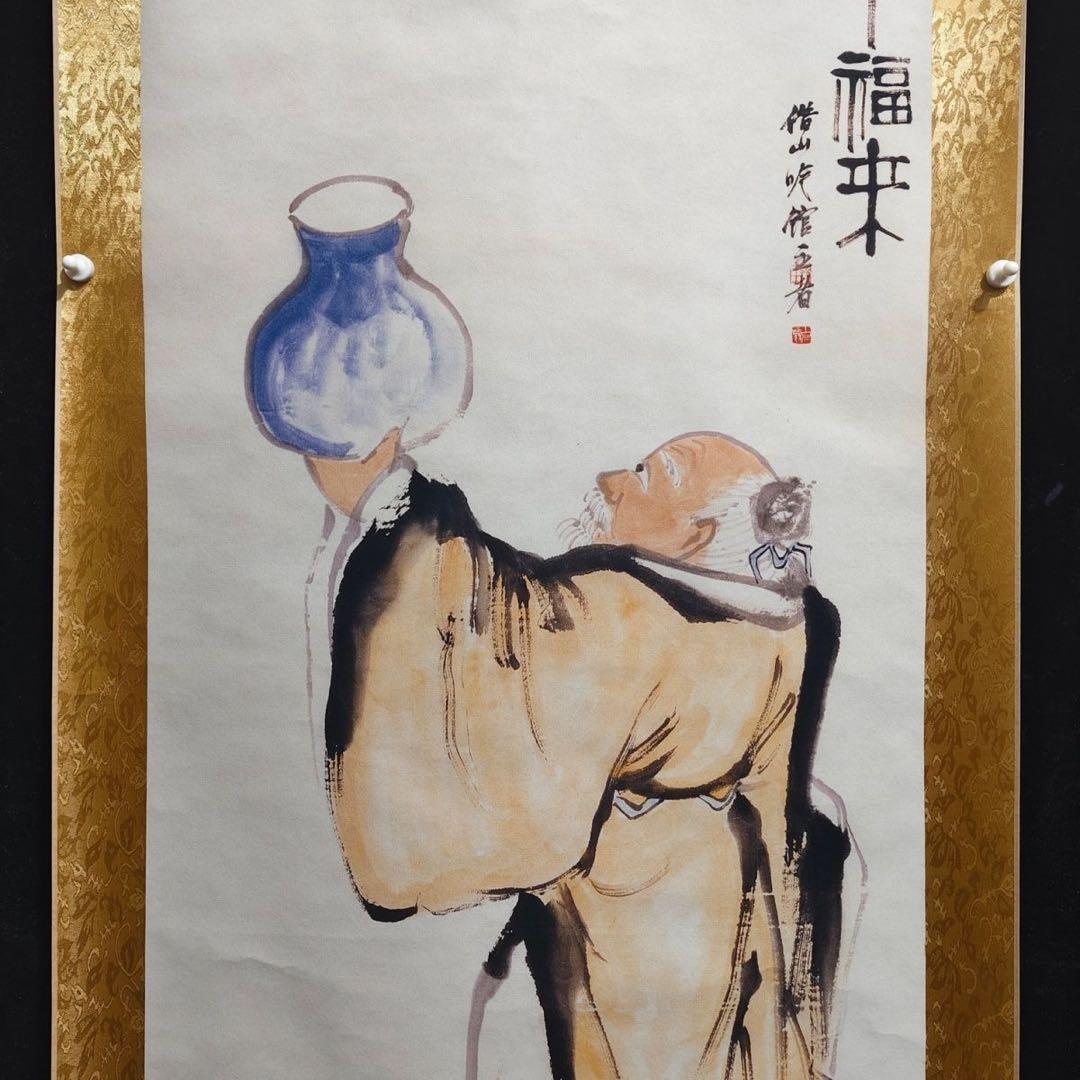 福来
借山吟館主者